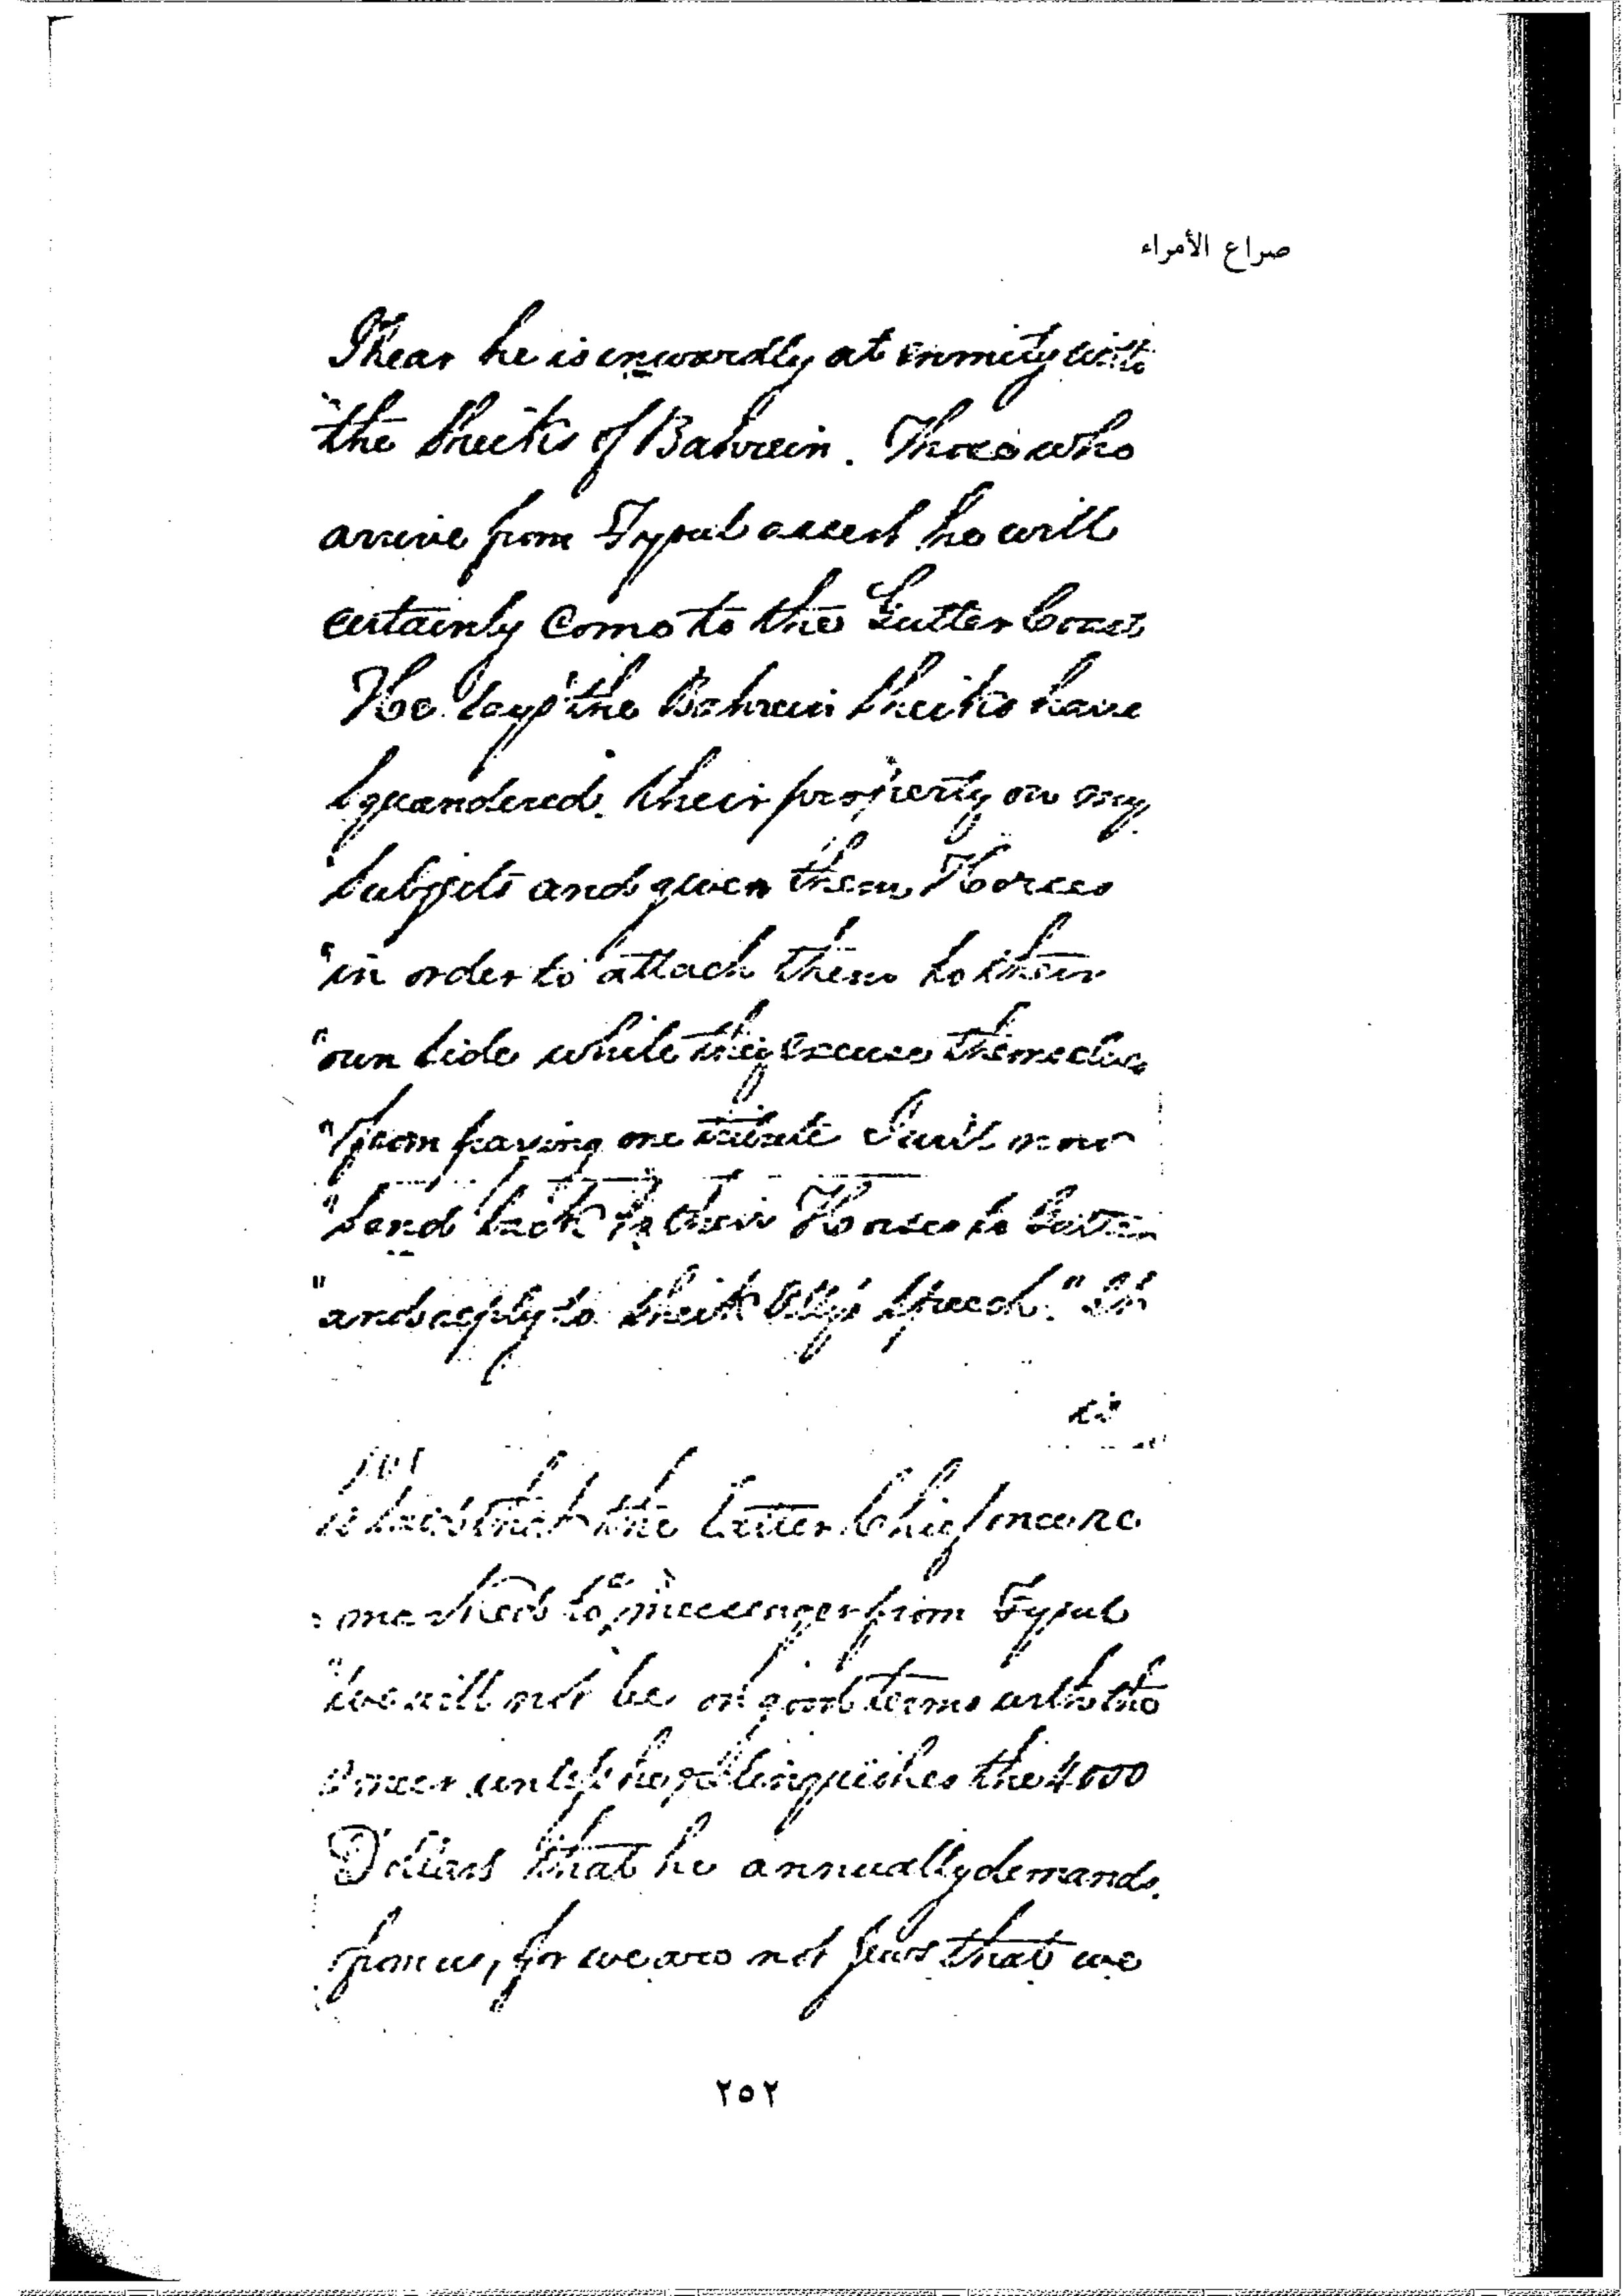 صراع الأمراء
I hear he is inwardly at enmity with
"the Sheiks of Bahrein. Those who
arrive from Fysul assert he will
certainly come to the Gutter Coast
He says "the Bahrein Sheiks have
squandered their property on my
"subjects and given them Horses
"in order to attach them to their
"own side while they excuse themselves
"from paying me tribute I will now
"send back to their Horses to
"and reply to Sheik Ally's speech." It
is
is said that the latter Chief once
remarked to a messenger from Fysul
"we will not be on good terms with the
unless he relinquishes the 4000
Dollars that he annually demands
from us, for we are not Jews that we
٢٥٢